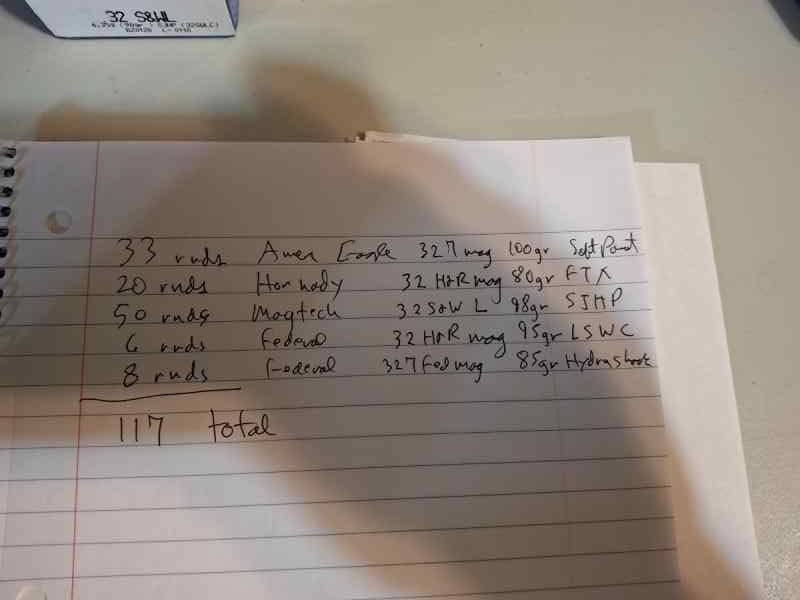 32 S&WL
6,35g (98gr) SJHP (32SWLC)
33 rnds Amer Eagle 327 mag 100gr Soft Point
20 rnds Hornady 32 H&R mag 80gr FTX
50 rnds Magtech 32 S&W L 98gr SJHP
6 rnds Federal 32 H&R mag 95gr LSWC
8 rnds Federal 327 Fed mag 85gr Hydrashock
117 total